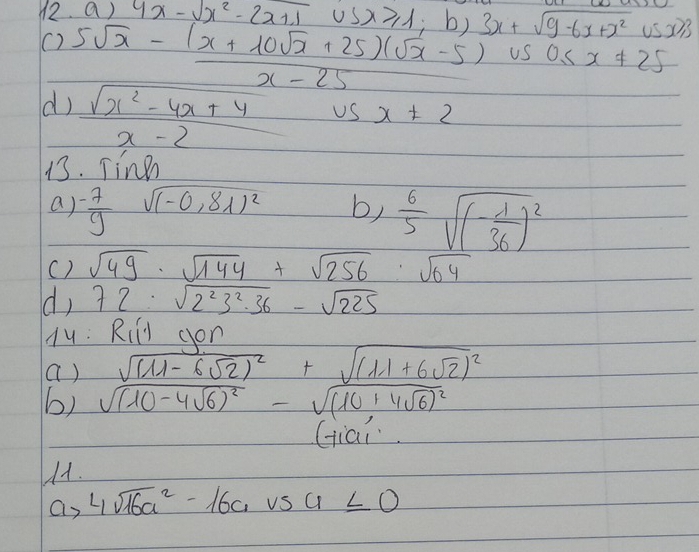 12. a) 4x - √x² - 2x+1 vs x ≥ 1; b) 3x + √9-6x+x² vs x≥3
c) 5√x - (x + 10√x + 25)(√x - 5) / x - 25 vs 0 ≤ x ≠ 25
d) √x² - 4x + 4 / x - 2 vs x ≠ 2
13. Tính
a) -7/9 √(-0,81)² b, 6/5 √(-1/36)²
c) √49 . √144 + √256 : √64
d, 72 : √2²3².36 - √225
14: Rút gọn
a) √(11-6√2)² + √(11+6√2)²
b) √(10-4√6)² - √(10+4√6)²
Giải:
11.
a, 4√16a² - 16a vs a ≤ 0